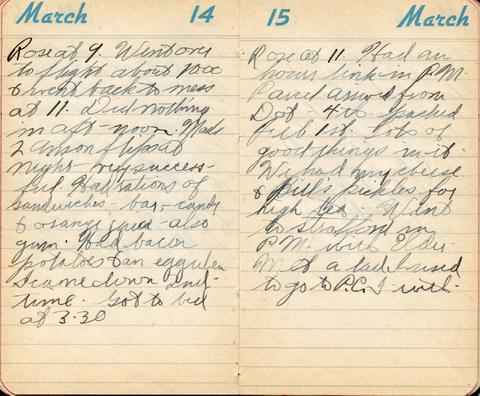 March 14
Rose at 9. Went over
to flight about 1000
& went back to mess
at 11. Did nothing
in aft-noon. Made
2 amson flips at
night - very success-
ful. Had rations of
sandwiches - bar - candy
& orange juice - also
gum. Had bacon
potatoes & an egg when
I came down 2nd
time. Got to bed
at 3.30
15 March
Rose at 11. Had an
hours link in P.M.
Parcel arrived from
Dot - 4th. packed
Feb 1st. Lots of
good things in it.
We had my cheese
& Bill's pickles for
high tea. Went
to Stratford in
P.M. with Elder.
Met a lad I used
to go to P.C.I. with.